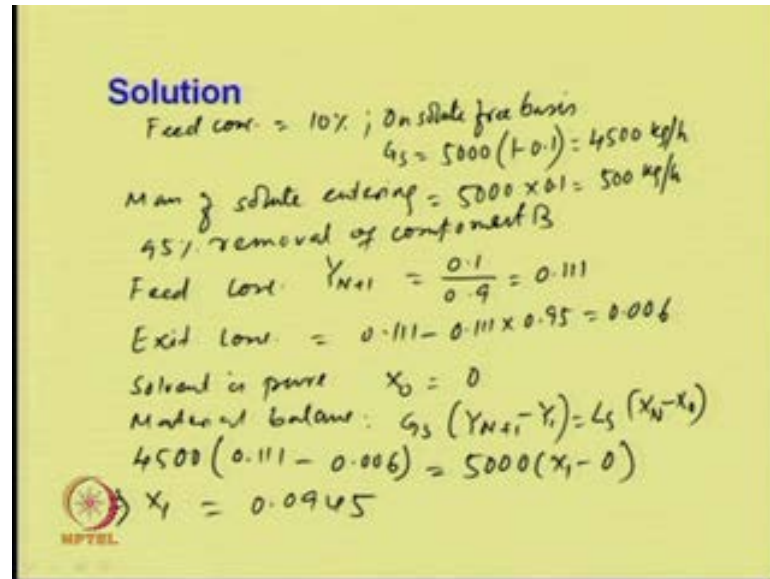 Solution
Feed conc. = 10% ; On solute free basis
G_S = 5000 (1-0.1) = 4500 kg/h
Mass of solute entering = 5000 x 0.1 = 500 kg/h
95% removal of component B
Feed conc. Y_{N+1} = 0.1/0.9 = 0.111
Exit conc. = 0.111 - 0.111 x 0.95 = 0.006
Solvent is pure X_0 = 0
Material balance: G_S (Y_{N+1} - Y_1) = L_S (X_N - X_0)
4500 (0.111 - 0.006) = 5000 (X_1 - 0)
⇒ X_1 = 0.0945
NPTEL